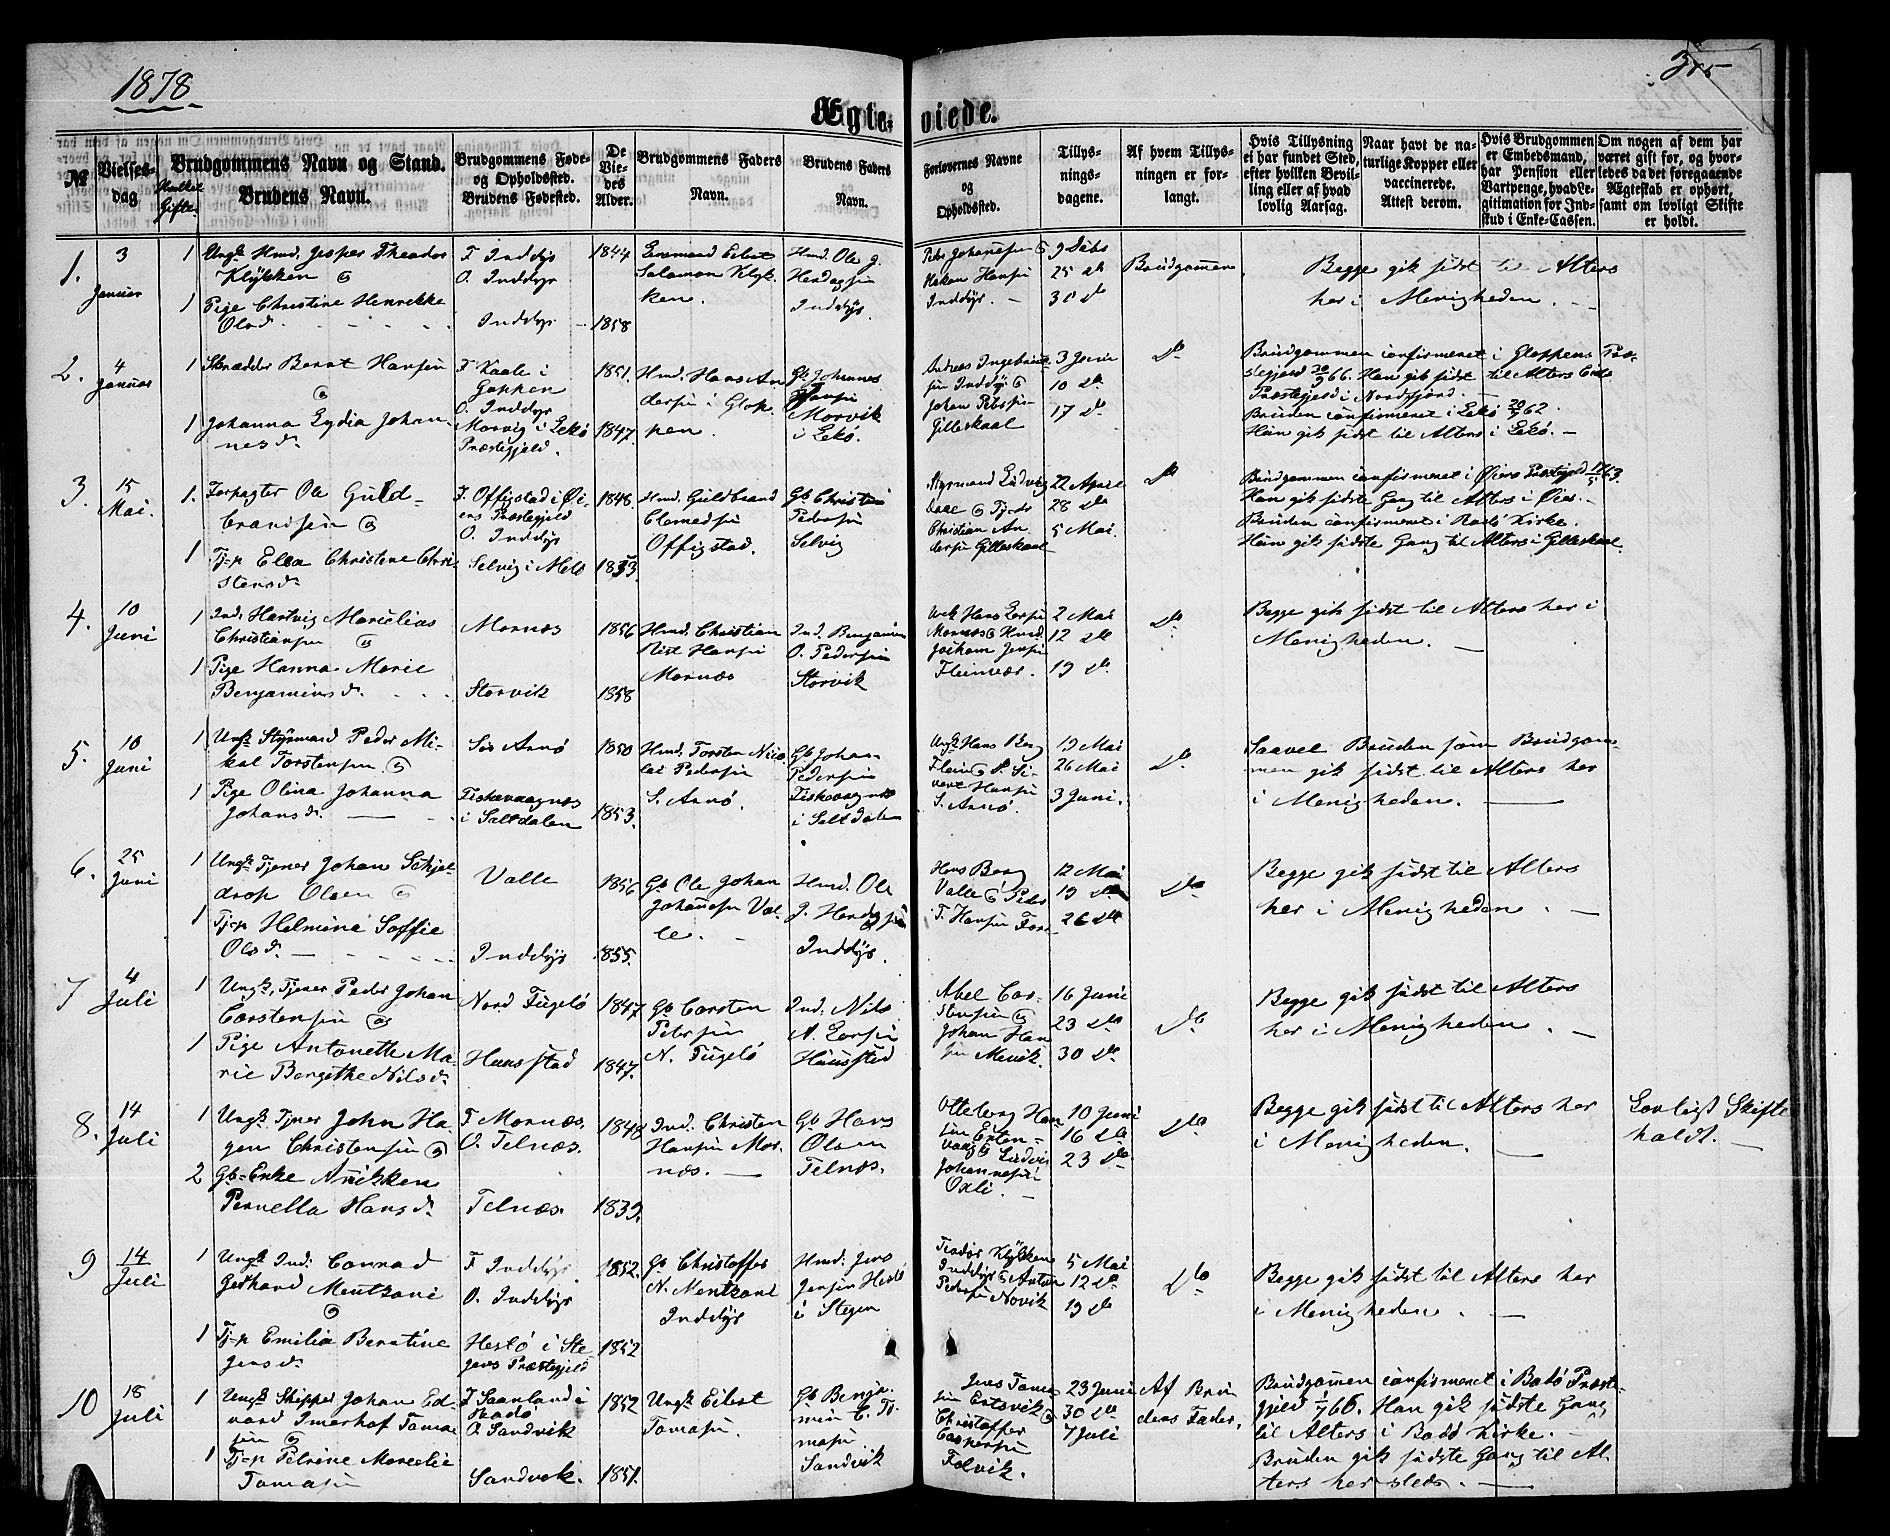 1878.
305
Ægteviede.
№
Vielsesdag
Hvilke Gifte.
Brudgommens Navn og Stand.
Brudens Navn.
Brudgommens Føde- og Opholdssted.
Brudens Fødested.
De Viedes Alder.
Brudgommens Faders Navn.
Brudens Faders Navn.
Forlovernes Navne og Opholdssted.
Tillysningsdagene.
Af hvem Tillysningen er forlangt.
Hvis Tillysning ei har fundet Sted, efter hvilken Bevilling eller af hvad lovlig Aarsag.
Naar havt de naturlige Kopper eller vaccinerede. Attest derom.
Hvis Brudgommen er Embedsmand, har Pension eller Vartpenge, hvad Legitimation for Indskud i Enke-Cassen.
Om nogen af dem har været gift før, og hvorledes da det foregaaende Ægteskab er ophørt, samt om lovligt Skifte er holdt.
1. 3 Januar
1 Ungk. Hmd. Jesper Theodor
Klykken &
1 Pige Christine Henrikke
Olsd.
F. Inddyr
O. Inddyr
Inddyr
1844
1858
Salomon Klykken.
Hmd. Ole J.
Inddyr.
Hakon Hansen
Inddyr.
9 Debr
25 do
30 do
Brudgommen
Begge gik sidst til Alters
her i Menigheden.
2. 4 Januar
1 Skrædder Berat Hansen
&
1 Johanna Lydia Johannesd.
F. Kaale i
Gøkken
O. Inddyr
Morvig i Lekø
Præstegjeld.
1851.
1847.
Hmd. Hans Andersen i Gloppen.
Gb. Johannes
Hansen
Morvik
i Lekø.
Andreas Ingebrigtsen Inddyr &
Johan Petersen
Gilleskaal
3 Janu
10 do
17 do
do
Brudgommen confirmeret i Gloppens Præstegjeld 30/9 66. Han gik sidst til Alters
Præstegjeld i Nordfjord.
Bruden confirmeret i Lekø 20/7 62.
Hun gik sidst til Alters i Lekø.
3. 15 Mai.
1. Forpagter Ole Guldbrandsen &
1 Tj=p Elen Christine Christensd.
F. Offigstad i Øiens Præstegjeld
O. Inddyr
Selvig i Melø
1848.
1853
Hmd. Guldbrand
Clemedsen
Offigstad.
Gb. Christen
Pedersen
Selvig
Styrmand Ludvig
Christian Andersen Gilleskaal
22 April
28 do
5 Mai.
do
Brudgommen confirmeret i Øiers Præstegjeld 63.
Han gik sidste Gang til Alters i Øier.
Bruden confirmeret i Bodø Kirke.
Hun gik sidste Gang til Alters i Gilleskaal.
4. 10 Juni
1 Ind. Hartvig Marelius
Christiansen &
1 Pige Hanna Marie
Benjaminsd.
Mornæs
Storvik
1856
1858
Hmd. Christian
Hansen
Mornæs
Ind. Benjamin
O. Pedersen
Storvik
Mornæs & Hmd.
Jochom Jensen
Fleinvær.
2 Mai
12 do
19 do
do
Begge gik sidst til Alters her i
Menigheden.
5. 10 Juni
1 Ungk. Styrmand Peder Mikal Torstensen. &
1 Pige Olina Johanna
Johansd.
Sør Arnø
Fiskevaagnæs
i Saltdalen
1850
1853.
Hmd. Torsten Nicolai Pedersen
S. Arnø.
Gb. Johan
Pedersen
Fiskevaagnæs
i Saltdalen
Ungk. Hans Berg
Flein & S. Sivert Hansen
S. Arnø.
19 Mai
26 Mai
3 Juni.
do
Saavel Bruden som Brudgommen gik sidst til Alters her
i Menigheden.
6. 25 Juni
1 Ungk. Tjener Johan Schjeldrop Olsen &
1 Tj=p Helmine Soffie
Olsd.
Valle
Inddyr
1856
1855.
Gb. Ole Johan
Johansen Valle.
Hmd. Ole
J.
Inddyr.
Hans Berg
Valle & Peder
T. Hansen
12 Mai
19 do
26 do
do
Begge gik sidst til Alters
her i Menigheden.
7 4 Juli
1 Ungk. Tjener Peder Johan
Corstensen &
1 Pige Antonette Marie Bergethe Nilsd.
Nord Fugelø
Haunstad
1847
1847.
Gb. Corsten
Petersen
N. Fugelø
Ind. Nils
A.
Haunstad
Abel Corstensen &
Johan Hansen Mevik.
16 Juni
23 do
30 do
do
Begge gik sidst til Alters
her i Menigheden.
8. 14 Juli
1 Ungk. Tjener John Hagen Christensen &
2 Gb=Enke Anikken
Pernella Hansd.
F. Mornæs.
O. Telnæs.
Telnæs.
1848
1839.
Ind. Christen
Hansen Mornæs.
Gb. Hans
Olsen
Telnæs.
Otteberg Hansen
& Ludvig
Johannesen
Oxli.
10 Juni
16 do
23 do
do
Begge gik sidst til Alters her
i Menigheden.
Lovligt Skifte
holdt.
9 14 Juli
1 Ungk. Ind. Conrad
Gerhard Mentzoni
&
1 Tj=p Emilia Berntine
Jensd.
F. Inddyr
O. Inddyr
Hestø i Stegens Præstegjeld
1852.
1852
Gb. Christoffer
N. Mentzoni
Inddyr
Hmd. Jens
Jensen Hestø
i Stegen
Teodor Klykken
Inddyr & Anton
Pedersen Novik
5 Mai
12 do
19 do
do
Begge gik sidst til Alters her
i Menigheden.
10 18 Juli
1 Ungk. Skipper Johan Edvard Imerhof Tomasen &
1 Tj=p Petrine Marselie
Tomasen
F. Saanland i
Bodø.
O. Sandvik
Sandvik.
1852
1851.
Ungk. Eilert
Tomasen
Gb. Benjamin E. Tomasen
Sandvik
Jens Tomasen Ertsvik &
Christoffer
Caspersen
Folvik.
23 Juni
30 do
7 Juli
Af Brudens Fader.
Brudgommen confirmeret i Bodø Præstegjeld 1/7 66. Han gik sidste Gang
til Alters i Bodø Kirke.
Bruden gik sidste Gang til Alters her steds.